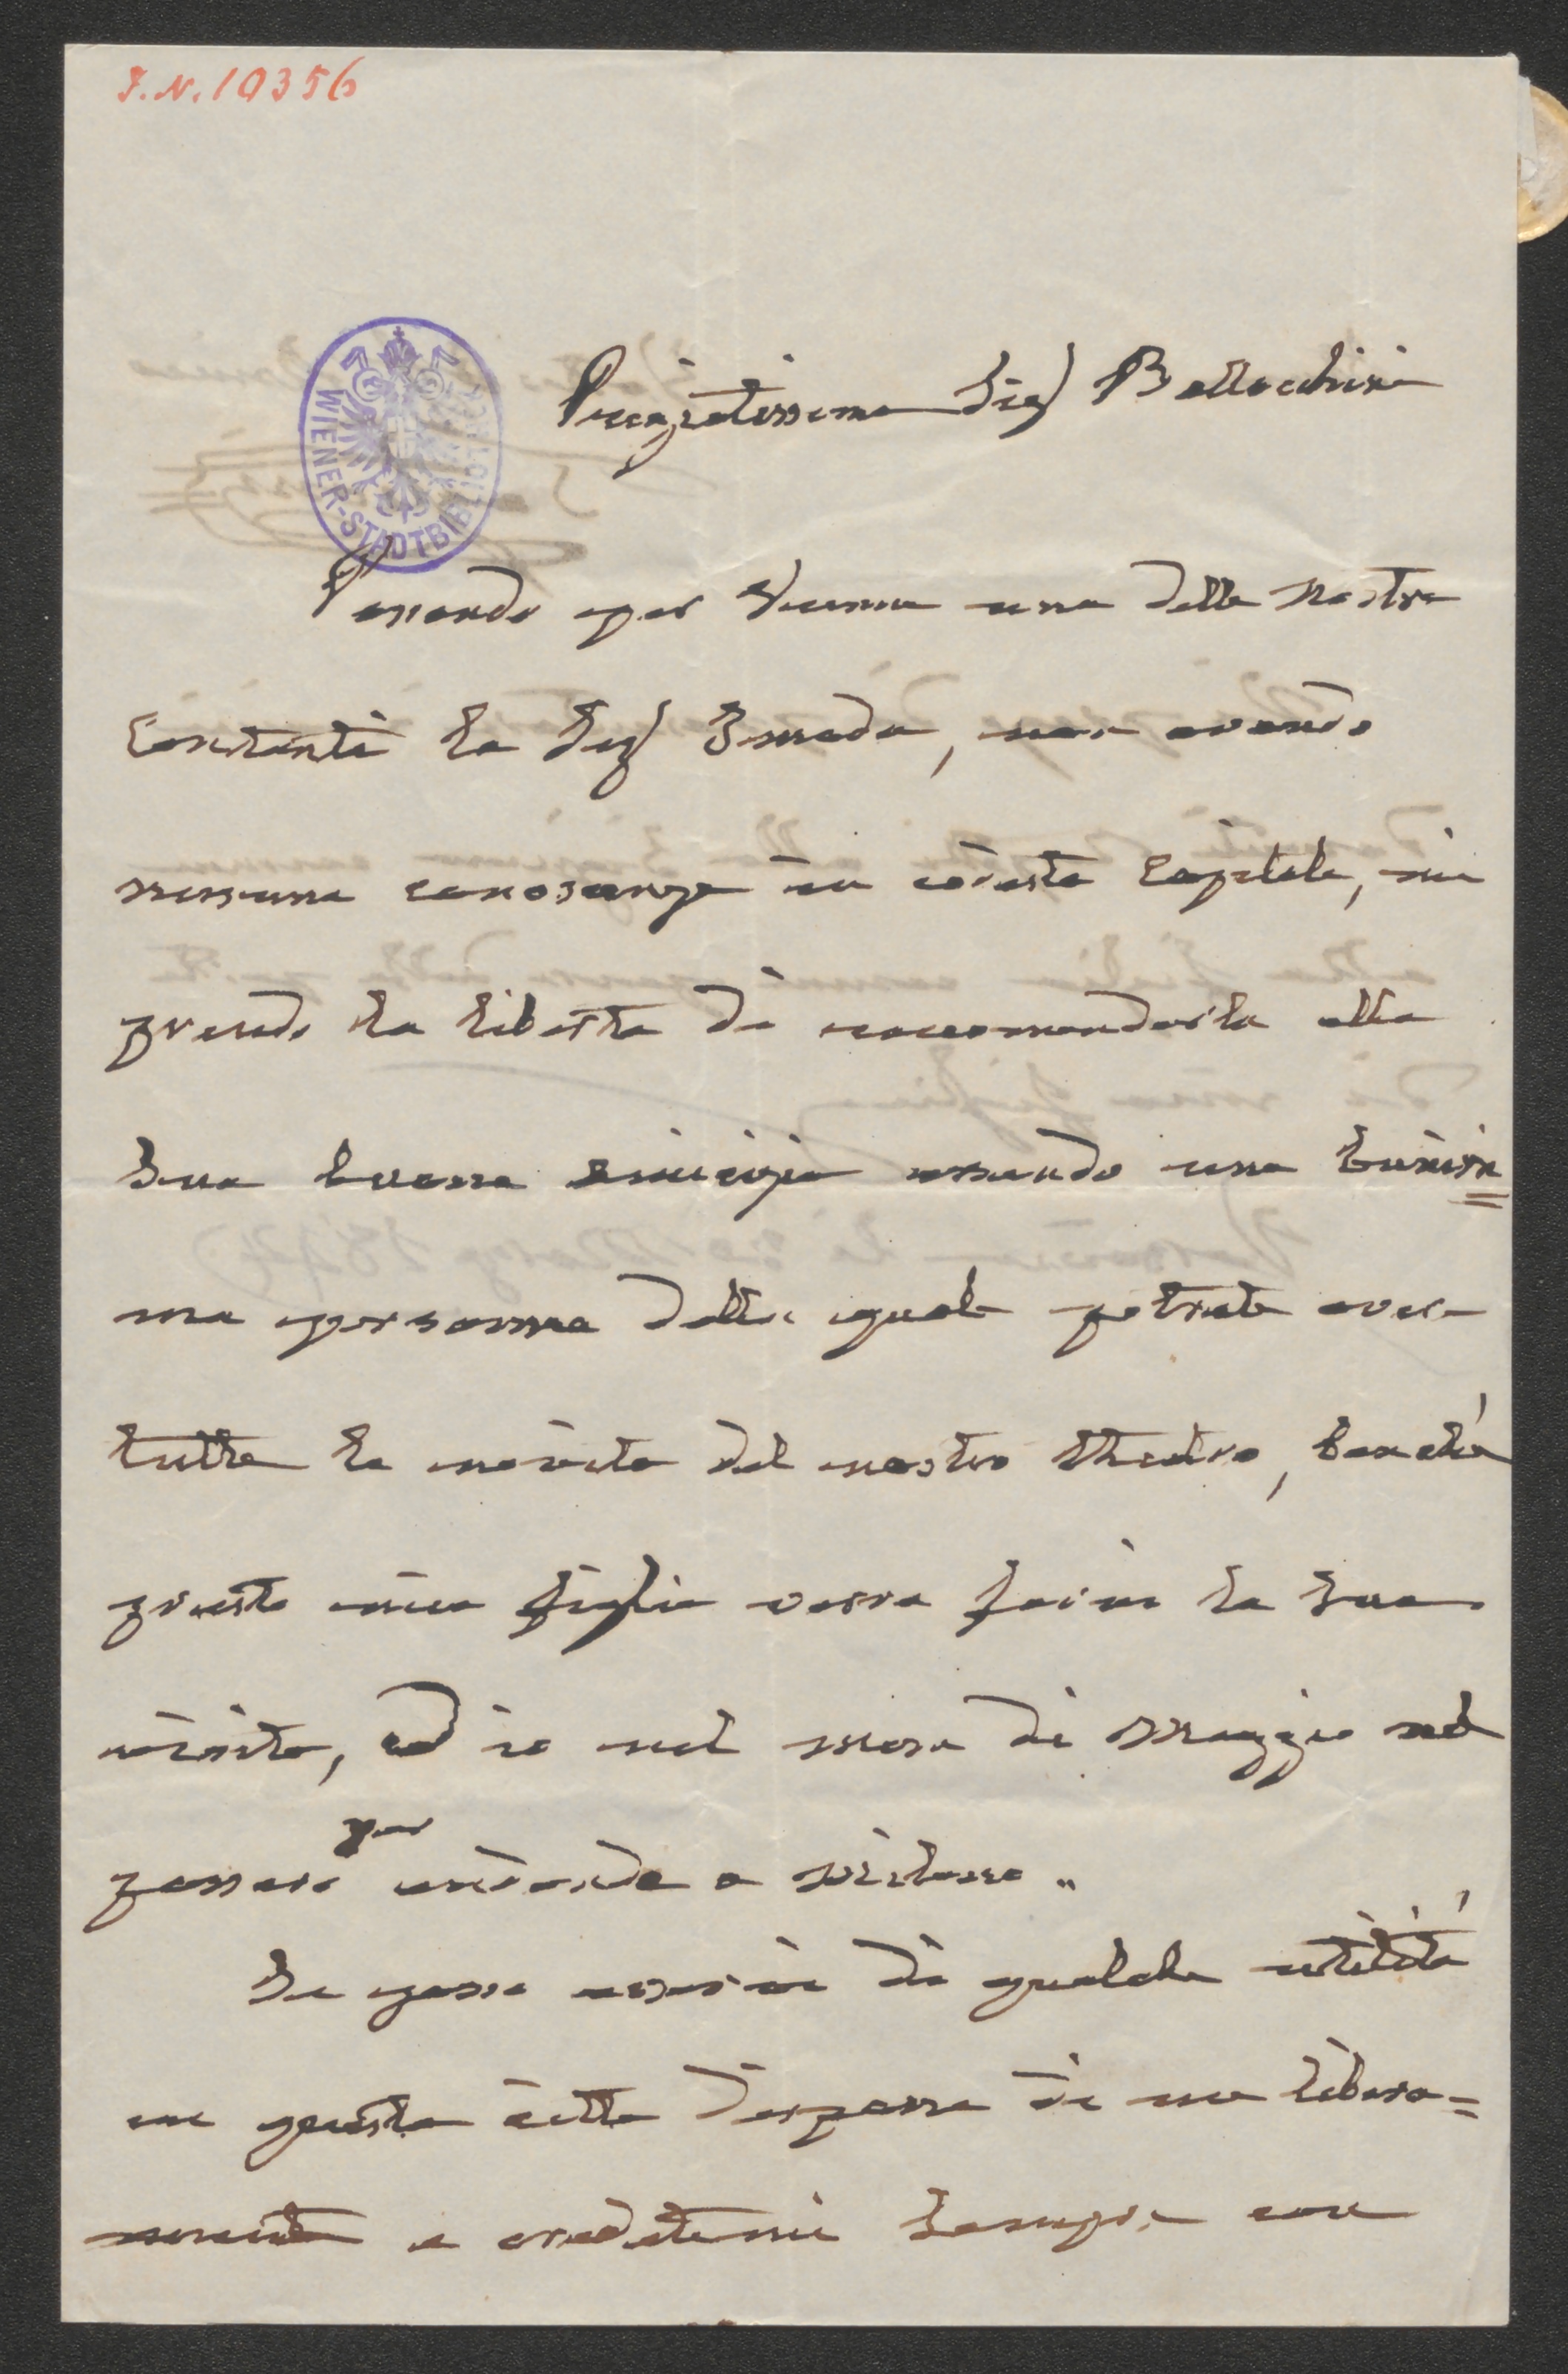 I.N. 10356
WIENER-STADTBIBLIOTHEK
Pregiatissima Sigª Bellochini
Passando per Vienna una delle nostre
Cantanti la Sigª Smeda, non avendo
nessuna conoscenza in codesta Capitale, mi
prendo la liberta di raccomandarla alla
Sua buona amicizia essendo una buonissi
ma persona della quale potrete avere
tutte le novita del nostro theatro, benchè
presto mia figlia verra farvi la sua
visita, ed io nel mese di Maggio nel
passare per andando a Milano.
Se posso esservi di qualche utilità
in questa citta disponete di me libera=
mente e credetemi sempre con